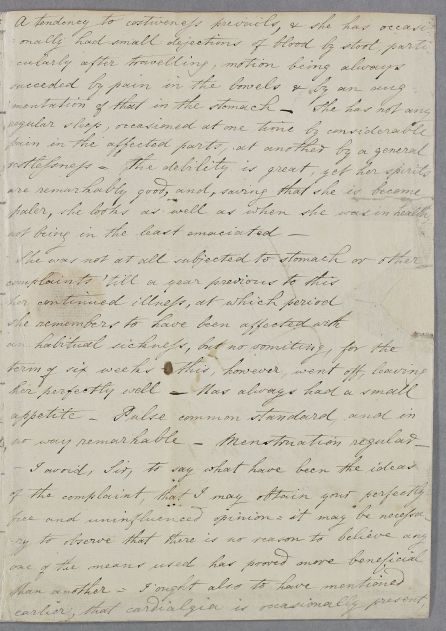 A tendency to costiveness prevails, & she has occasi-
onally had small dejections of blood by stool, parti
cularly after travelling, motion being always
succeeded by pain in the bowels & by an aug
mentation of that in the stomach – She has not any
regular sleep, occasioned at one time by considerable
pain in the affected parts, at another by a general
restlessness – The debility is great, yet her spirits
are remarkably good, and, saving that she is become
paler, she looks as well as when she was in health,
not being in the least emaciated –
She was not at all subjected to stomach or other
complaints 'till a year previous to this
her continued illness, at which period
she remembers to have been affected with
an habitual sickness, but no vomiting, for the
term of six weeks this, however, went off, leaving
her perfectly well – Has always had a small
appetite – Pulse common standard, and in
no way remarkable – Menstruation regular –
– I avoid, Sir, to say what have been the ideas
of the complaint, that I may obtain your perfectly
free and uninfluenced opinion – it may be necessa
-ry to observe that there is no reason to believe any
one of the means used has proved more beneficial
than another – I ought also to have mentioned
earlier, that cardialgia is occasionally present